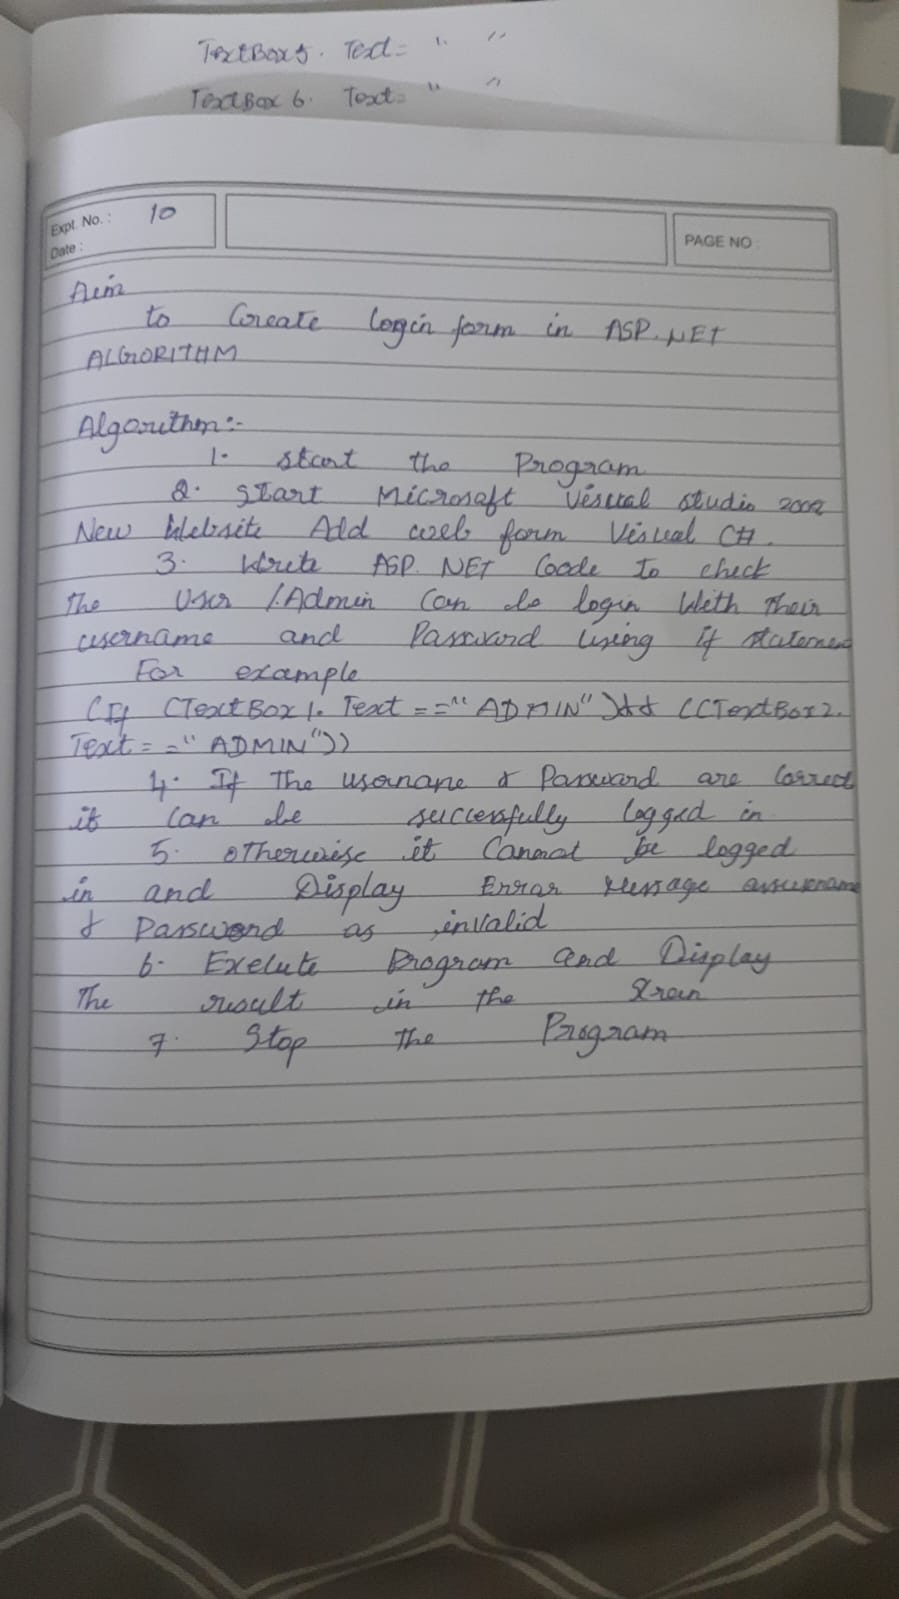 TextBox5. Text = " "
TextBox 6. Text = " "
Expt. No. : 10
Date :
PAGE NO :
Aim
to Create login form in ASP.NET
ALGORITHM
Algorithm:-
1. start the Program
2. Start Microsoft Visual studio
New Website Add web form Visual C#.
3. Write ASP. NET Code To check
the User /.Admin Can do login With Their
username and Password Using if statement
For example
(If (TextBox 1. Text == "ADMIN") && ((TextBox2.
Text = = "ADMIN"))
4. If The username & Password are Correct
it Can be successfully logged in
5. otherwise it Cannot be logged
in and Display Error Message
& Password as invalid
6. Exelute Program and Display
The result in the
7. Stop The Program